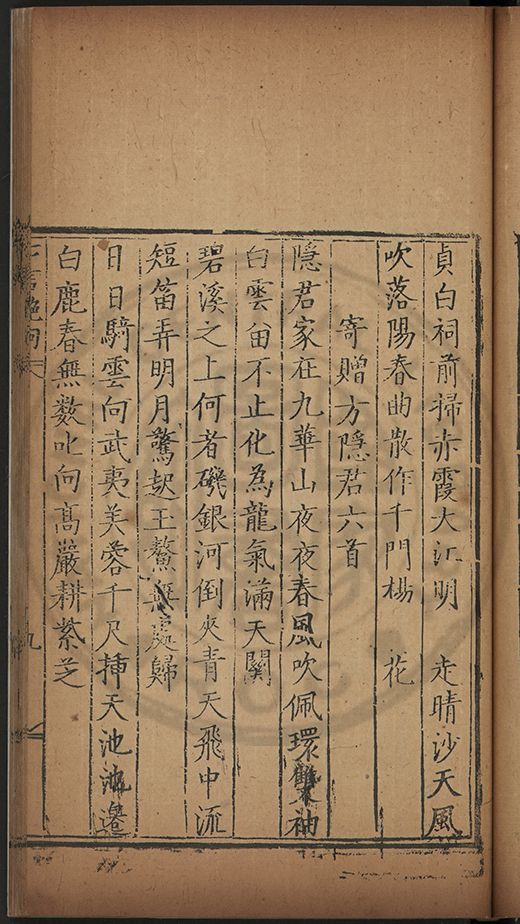 貞白祠前掃赤霞大江明　走晴沙天風
吹落陽春曲散作千門楊　花
寄贈方隱君六首
隱君家在九華山夜夜春風吹佩環雙袖
白雲留不止化為龍氣滿天關
碧溪之上何者磯銀河倒夾青天飛中流
短笛弄明月驚起王鰲無處歸
日日騎雲向武夷芙蓉千尺揷天池池邊
白鹿春無數叱向高巖耕紫芝
七言絶句
九